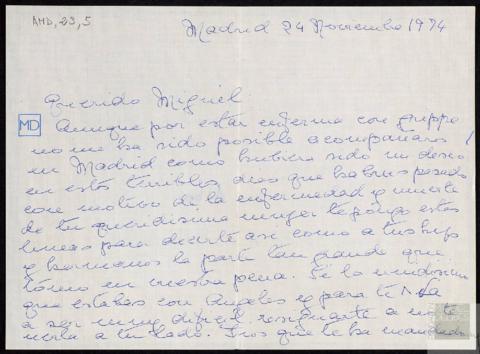 AMD, 23, 5
Madrid 24 Noviembre 1974
Querido Miguel
MD
Aunque por estar enferma con grippe
no me ha sido posible acompañaros
en Madrid como hubiera sido mi deseo
en estos terribles días que habeis pasado
con motivo de la enfermedad y muerte
de tu queridisima mujer te pongo estas
lineas para decirte asi como a tus hijos
y hermanos la parte tan grande que
tomo en vuestra pena. Se lo
que estabas con Angeles y para ti
a ser muy dificil resignarte a no
verla a tu lado. Dios que te ha mandado